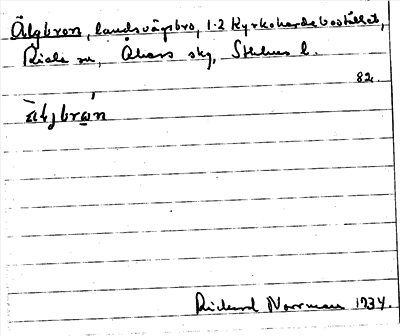 Älgbron, landsvägsbro, 1-2 Kyrkoherdebostället,
Riala sn, Åkers skg, Sthlms l.
82.
Älgbron
Rickard Norrman 1934.